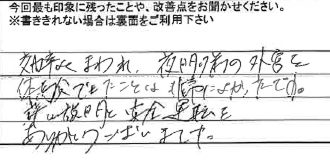 今回最も印象に残ったことや、改善点をお聞かせください。
※書ききれない場合は裏面をご利用下さい
効率よくまわれ、夜明け前の外宮を
体験できたことは非常によかったです。
説明と安全運転を
ありがとうございました。